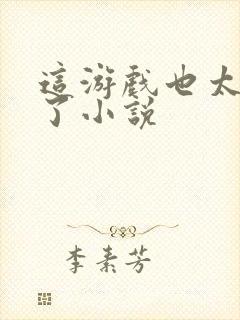 這游戲也太
了小說
李素芳